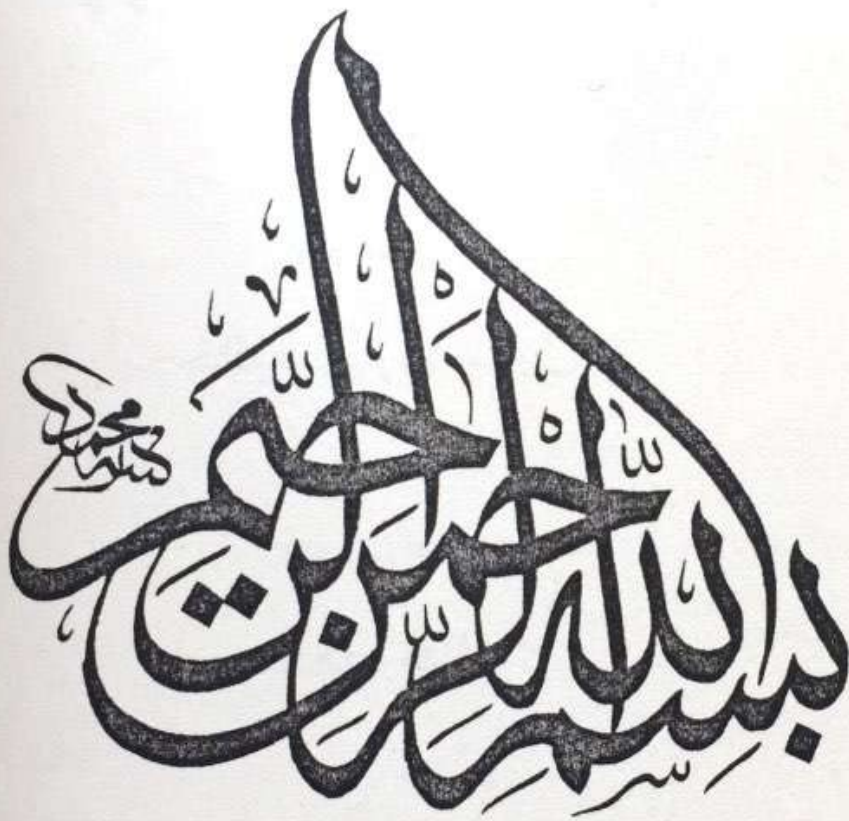 بِسْمِ اللّٰهِ الرَّحْمٰنِ الرَّحِيْمِ
محمد